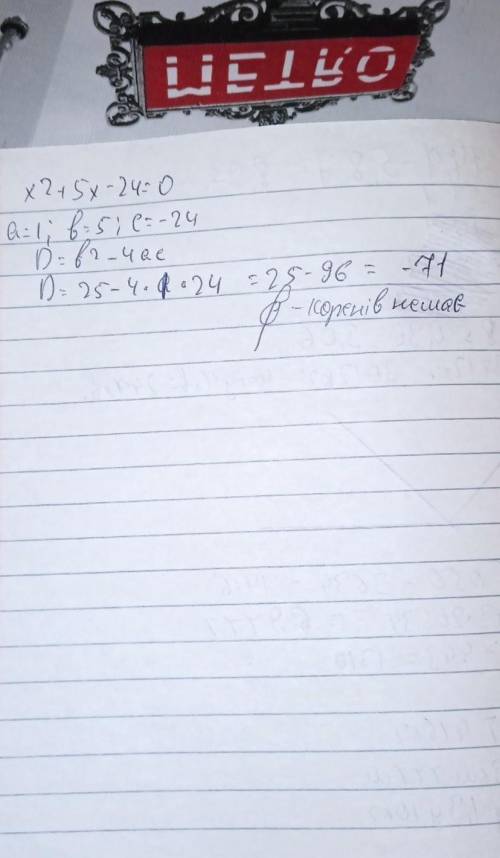 METRO
x2+5x-24=0
a=1; b=5; c=-24
D=b2-4ac
D=25-4·1·24 =25-96= -71
∅-коренів немає